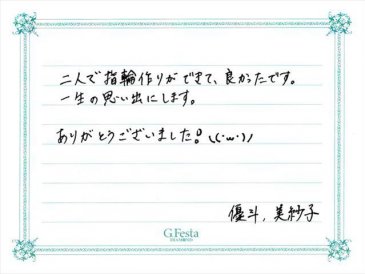 二人で指輪作りができて、良かったです。
一生の思い出にします。
ありがとうございました! \((・ω・)/
優斗, 美紗子
G.Festa
DIAMOND